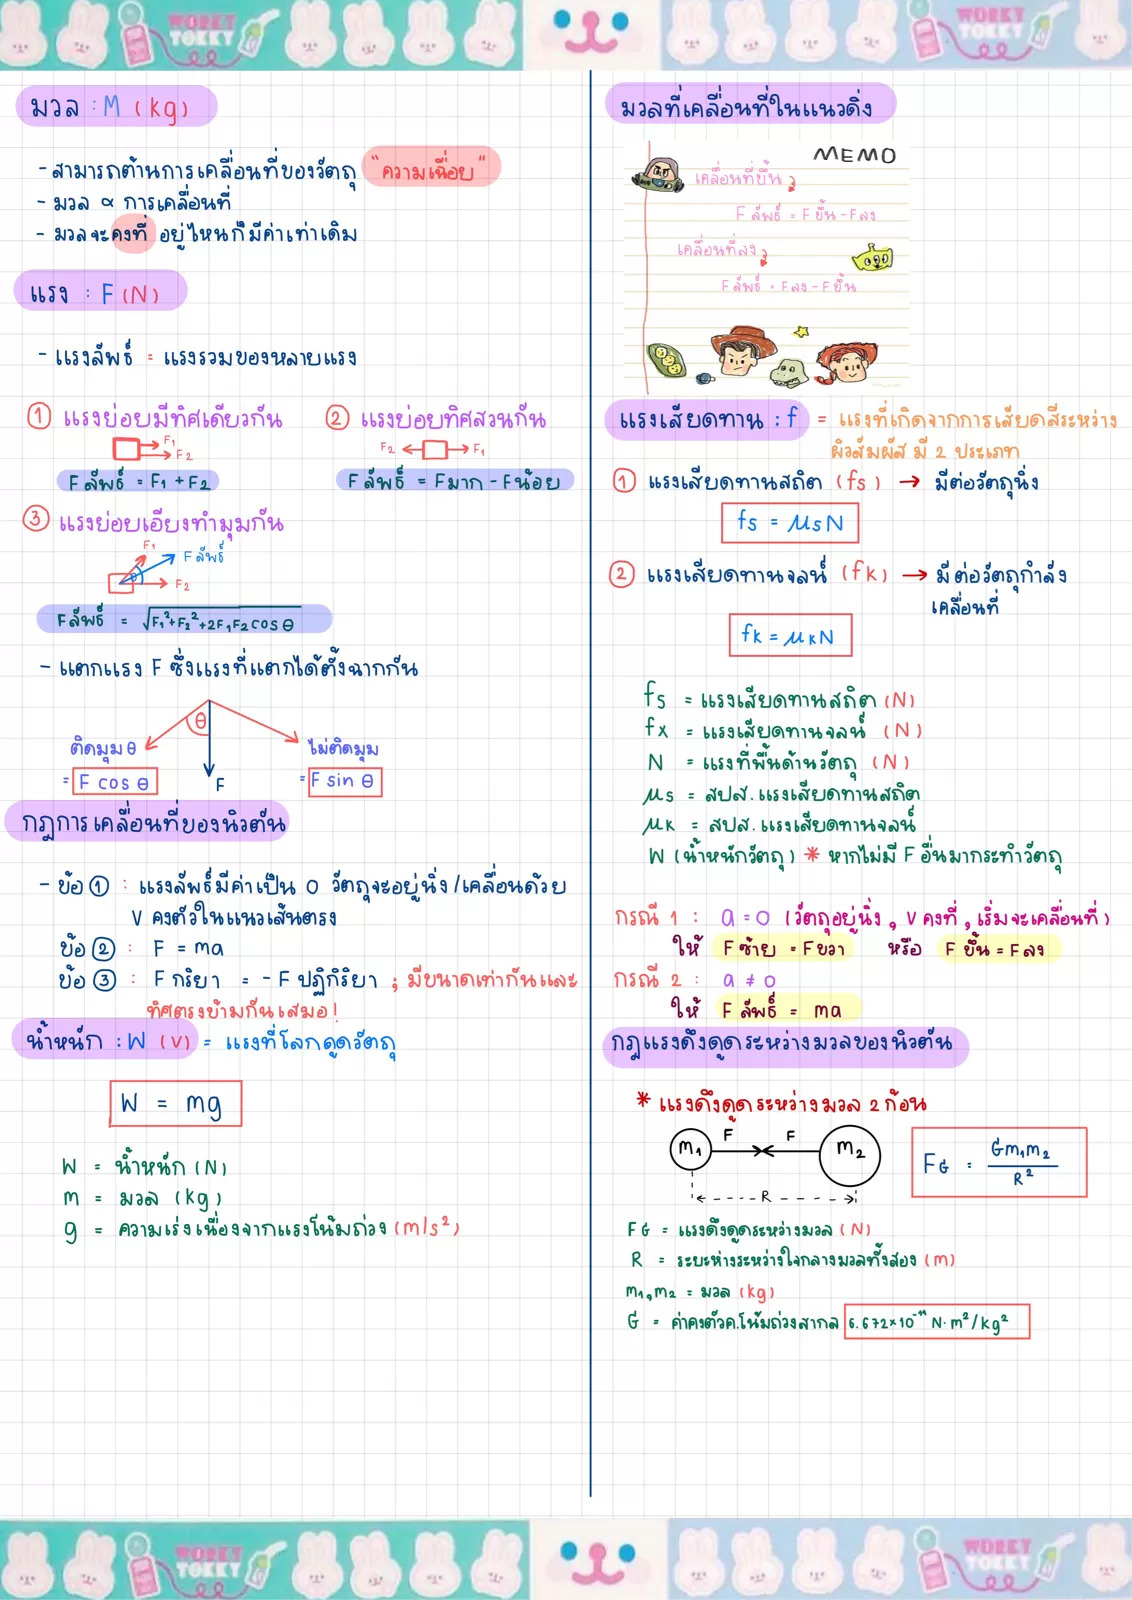 WORKY
TOKKY
WORKY
TOKKY
มวล : M (kg)
- สามารถต้านการเคลื่อนที่ของวัตถุ "ความเฉื่อย"
- มวล ∝ การเคลื่อนที่
- มวลจะคงที่ อยู่ไหนก็มีค่าเท่าเดิม
แรง : F (N)
- แรงลัพธ์ = แรงรวมของหลายแรง
① แรงย่อยมีทิศเดียวกัน
F1
F2
F ลัพธ์ = F1 + F2
② แรงย่อยทิศสวนกัน
F2 F1
F ลัพธ์ = F มาก - F น้อย
③ แรงย่อยเอียงทำมุมกัน
F1
F ลัพธ์
θ
F2
F ลัพธ์ = √F1²+F2²+2F1F2cosθ
- แตกแรง F ซึ่งแรงที่แตกได้ตั้งฉากกัน
θ
ติดมุม θ
= F cos θ
F
ไม่ติดมุม
= F sin θ
กฎการเคลื่อนที่ของนิวตัน
- ข้อ ① : แรงลัพธ์มีค่าเป็น 0 วัตถุจะอยู่นิ่ง/เคลื่อนด้วย
v คงตัวในแนวเส้นตรง
ข้อ ② : F = ma
ข้อ ③ : F กริยา = - F ปฏิกิริยา ; มีขนาดเท่ากันและ
ทิศตรงข้ามกันเสมอ!
น้ำหนัก : W (v) = แรงที่โลกดูดวัตถุ
W = mg
W = น้ำหนัก (N)
m = มวล (kg)
g = ความเร่งเนื่องจากแรงโน้มถ่วง (m/s²)
มวลที่เคลื่อนที่ในแนวดิ่ง
MEMO
เคลื่อนที่ขึ้น ;
F ลัพธ์ = F ขึ้น - F ลง
เคลื่อนที่ลง ;
F ลัพธ์ = F ลง - F ขึ้น
แรงเสียดทาน : f = แรงที่เกิดจากการเสียดสีระหว่าง
ผิวสัมผัส มี 2 ประเภท
① แรงเสียดทานสถิต (fs) → มีต่อวัตถุนิ่ง
fs = μsN
② แรงเสียดทานจลน์ (fk) → มีต่อวัตถุกำลัง
เคลื่อนที่
fk = μkN
fs = แรงเสียดทานสถิต (N)
fx = แรงเสียดทานจลน์ (N)
N = แรงที่พื้นด้านวัตถุ (N)
μs = สปส. แรงเสียดทานสถิต
μk = สปส. แรงเสียดทานจลน์
W (น้ำหนักวัตถุ) * หากไม่มี F อื่นมากระทำวัตถุ
กรณี 1 : a = 0 (วัตถุอยู่นิ่ง, v คงที่, เริ่มจะเคลื่อนที่)
ให้ F ซ้าย = F ขวา หรือ F ขึ้น = F ลง
กรณี 2 : a ≠ 0
ให้ F ลัพธ์ = ma
กฎแรงดึงดูดระหว่างมวลของนิวตัน
* แรงดึงดูดระหว่างมวล 2 ก้อน
m1 F F m2
R
FG = Gm1m2 / R²
FG = แรงดึงดูดระหว่างมวล (N)
R = ระยะห่างระหว่างใจกลางมวลทั้งสอง (m)
m1,m2 = มวล (kg)
G = ค่าคงตัวค.โน้มถ่วงสากล 6.672×10⁻¹¹ N·m²/kg²
WORKY
TOKKY
WORKY
TOKKY